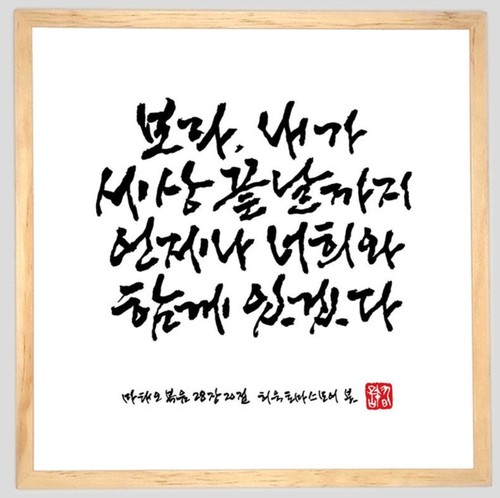 보라, 내가
세상 끝 날까지
언제나 너희와
함께 있겠다
마태오 복음 28장 20절